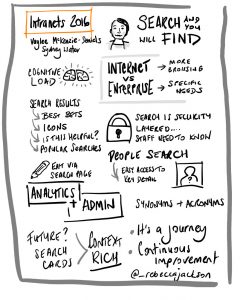 Intranets 2016
Haylee McKenzie-Daniels
Sydney Water
SEARCH AND YOU
WILL FIND
COGNITIVE
LOAD
INTERNET
VS
ENTERPRISE
→ MORE
BROWSING
→ SPECIFIC
NEEDS
SEARCH RESULTS
→ BEST BETS
→ ICONS
→ IS THIS HELPFUL?
→ POPULAR SEARCHES
SEARCH IS SECURITY
LAYERED....
STAFF NEED TO KNOW
EDIT VIA
SEARCH PAGE
PEOPLE SEARCH
EASY ACCESS TO
KEY DETAIL
ANALYTICS
+ ADMIN
SYNONYMS + ACRONYMS
FUTURE?
SEARCH
CARDS
CONTEXT
RICH
• It's a journey
• Continuous
Improvement
@_rebeccajackson